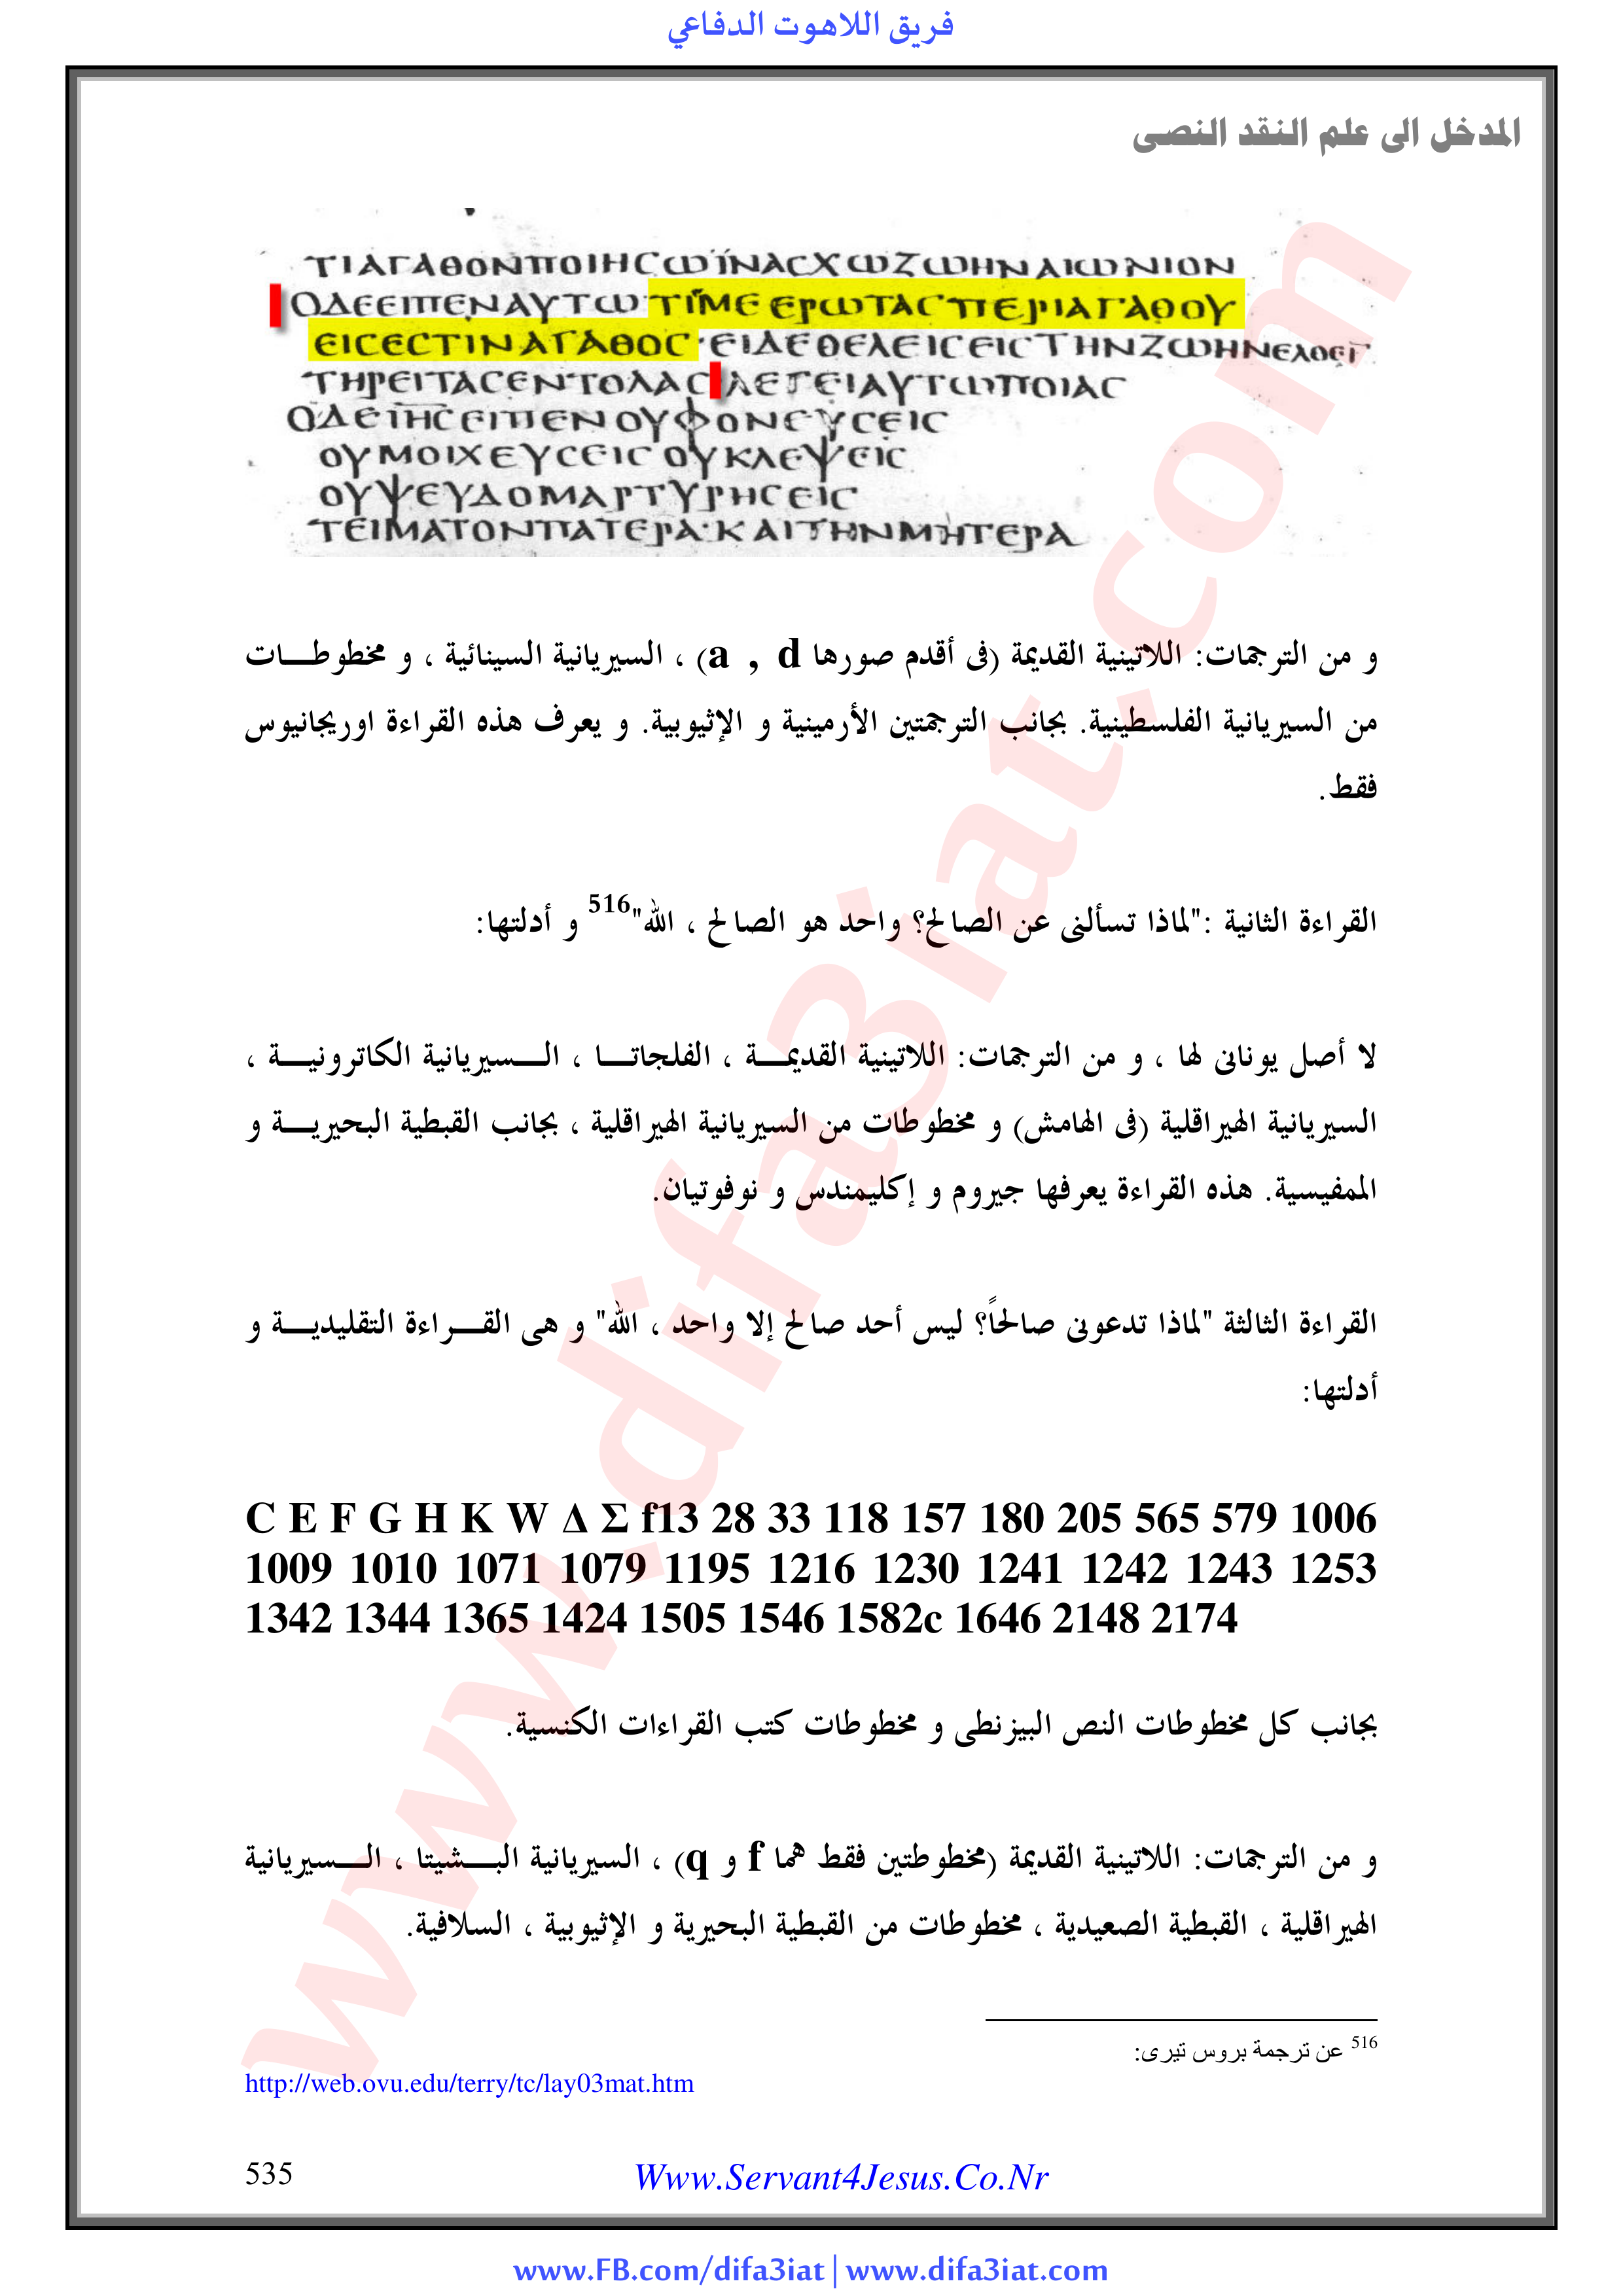 فريق اللاهوت الدفاعي
المدخل الى علم النقد النصى
ΤΙΑΓΑΘΟΝΠΟΙΗCΩΪΝΑCΧΩΖΩΗΝΑΙΩΝΙΟΝ
ΟΔΕΕΙΠΕΝΑΥΤΩ·ΤΙΜΕΕΡΩΤΑCΠΕΡΙΑΓΑΘΟΥ
ΕΙCΕCΤΙΝΑΓΑΘΟC·ΕΙΔΕΘΕΛΕΙCΕΙCΤΗΝΖΩΗΝΕΛΘΕΙ
ΤΗΡΕΙΤΑCΕΝΤΟΛΑC ΛΕΓΕΙΑΥΤΩΠΟΙΑC
ΟΔΕΙΗCΕΙΠΕΝΟΥΦΟΝΕΥCΕΙC
ΟΥΜΟΙΧΕΥCΕΙC ΟΥΚΛΕΨΕΙC
ΟΥΨΕΥΔΟΜΑΡΤΥΡΗCΕΙC
ΤΕΙΜΑΤΟΝΠΑΤΕΡΑ·ΚΑΙΤΗΝΜΗΤΕΡΑ
و من الترجمات: اللاتينية القديمة (فى أقدم صورها a , d) ، السيريانية السينائية ، و مخطوطـــات
من السيريانية الفلسطينية. بجانب الترجمتين الأرمينية و الإثيوبية. و يعرف هذه القراءة اوريجانيوس
فقط.
القراءة الثانية :"لماذا تسألنى عن الصالح؟ واحد هو الصالح ، الله"516 و أدلتها:
لا أصل يونانى لها ، و من الترجمات: اللاتينية القديمـــة ، الفلجاتـــا ، الـــسيريانية الكاترونيـــة ،
السيريانية الهيراقلية (فى الهامش) و مخطوطات من السيريانية الهيراقلية ، بجانب القبطية البحيريـــة و
الممفيسية. هذه القراءة يعرفها جيروم و إكليمندس و نوفوتيان.
القراءة الثالثة "لماذا تدعونى صالحاً؟ ليس أحد صالح إلا واحد ، الله" و هى القـــراءة التقليديـــة و
أدلتها:
C E F G H K W Δ Σ f13 28 33 118 157 180 205 565 579 1006
1009 1010 1071 1079 1195 1216 1230 1241 1242 1243 1253
1342 1344 1365 1424 1505 1546 1582c 1646 2148 2174
بجانب كل مخطوطات النص البيزنطى و مخطوطات كتب القراءات الكنسية.
و من الترجمات: اللاتينية القديمة (مخطوطتين فقط هما f و q) ، السيريانية البـــشيتا ، الـــسيريانية
الهيراقلية ، القبطية الصعيدية ، مخطوطات من القبطية البحيرية و الإثيوبية ، السلافية.
516 عن ترجمة بروس تيرى:
http://web.ovu.edu/terry/tc/lay03mat.htm
535
Www.Servant4Jesus.Co.Nr
www.FB.com/difa3iat | www.difa3iat.com
www.difa3iat.com